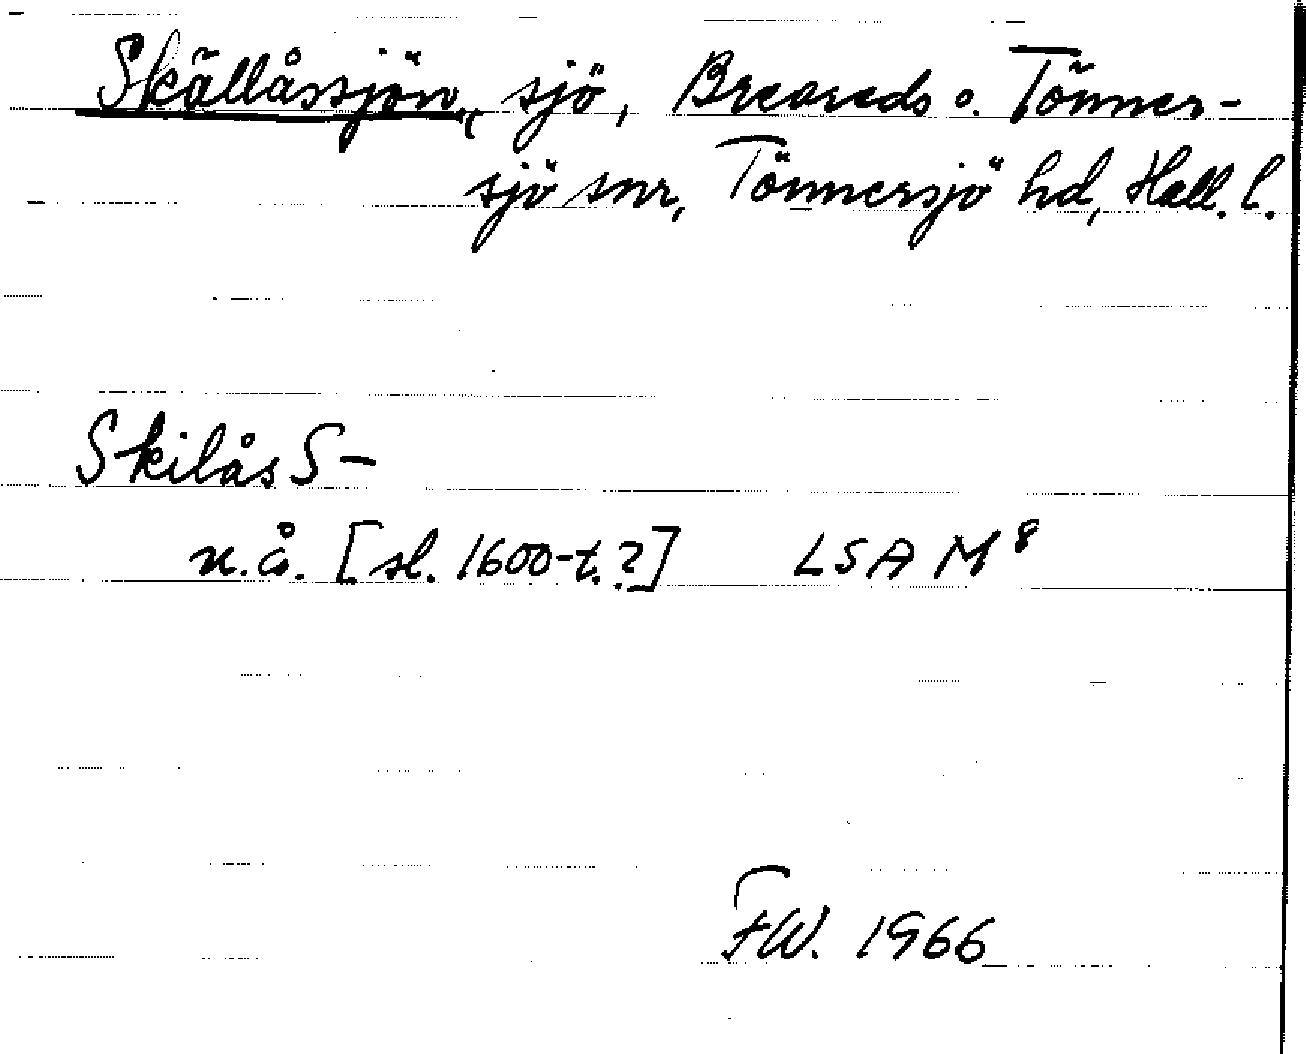 Skällåssjön, sjö, Breareds o. Tönner-
sjö snr, Tönnersjö hd, Hall. l.
Skilås S-
u.å. [sl. 1600-t.?] LSA M⁸
FW. 1966